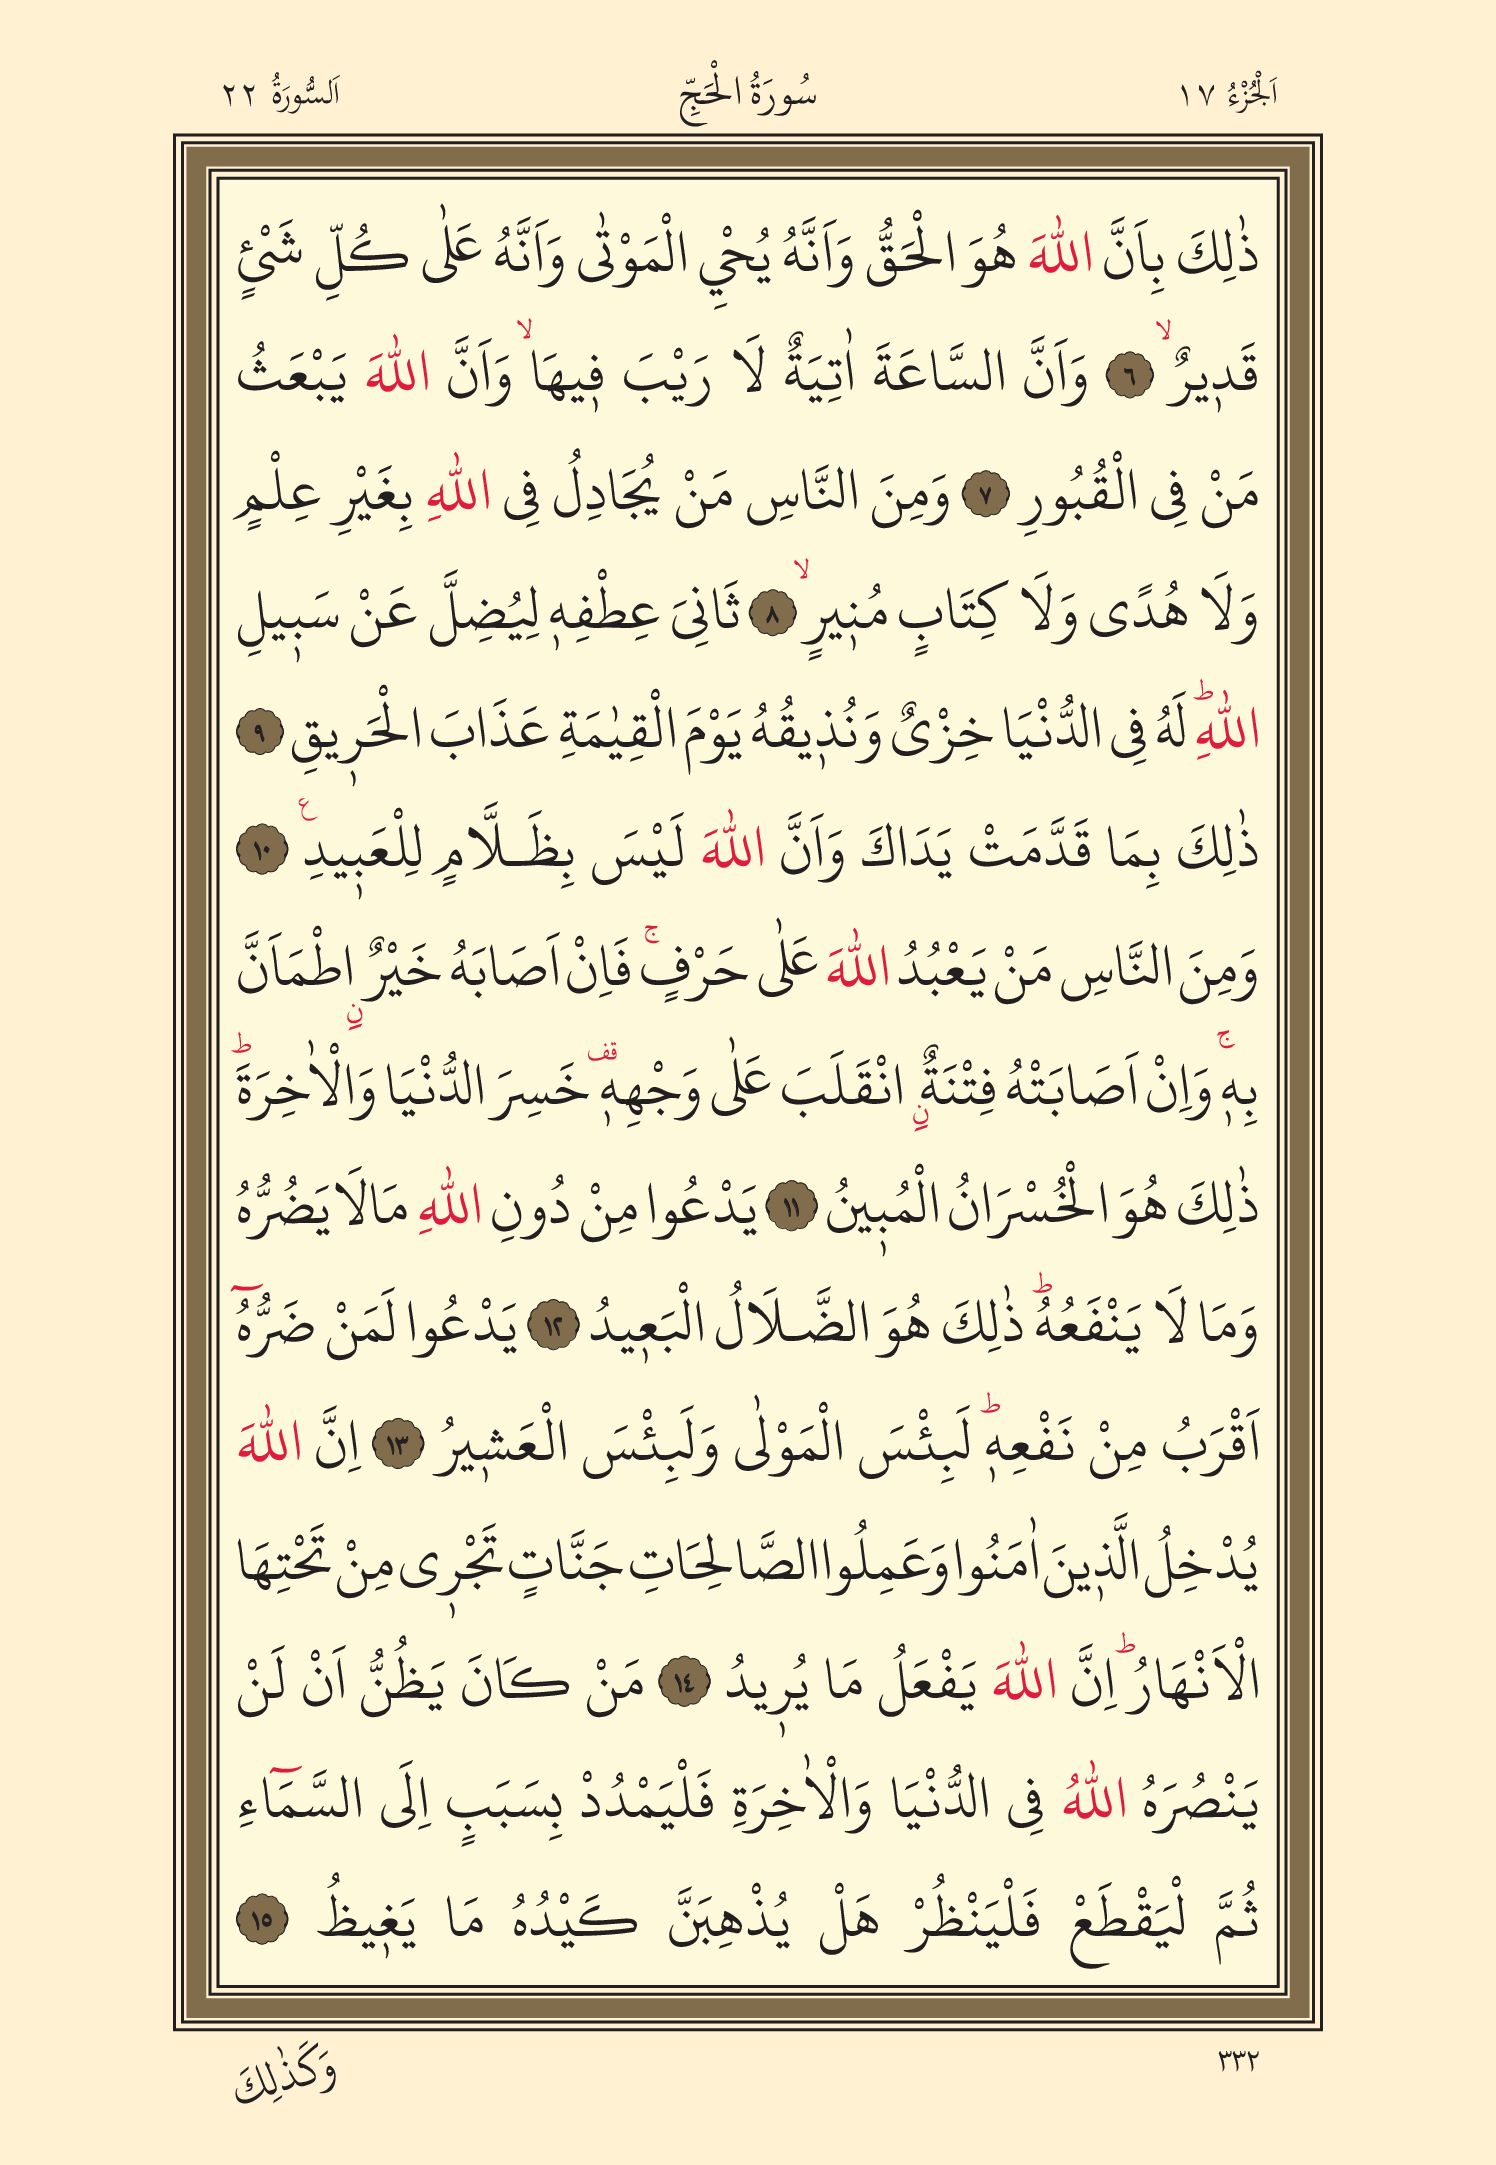 اَلْجُزْءُ ١٧ سُورَةُ الْحَجِّ اَلسُّورَةُ ٢٢
ذٰلِكَ بِاَنَّ اللّٰهَ هُوَ الْحَقُّ وَاَنَّهُ يُحْيِ الْمَوْتٰى وَاَنَّهُ عَلٰى كُلِّ شَيْئٍ
قَدٖيرٌۙ ٦ وَاَنَّ السَّاعَةَ اٰتِيَةٌ لَا رَيْبَ فٖيهَاۙ وَاَنَّ اللّٰهَ يَبْعَثُ
مَنْ فِى الْقُبُورِ ٧ وَمِنَ النَّاسِ مَنْ يُجَادِلُ فِى اللّٰهِ بِغَيْرِ عِلْمٍ
وَلَا هُدًى وَلَا كِتَابٍ مُنٖيرٍۙ ٨ ثَانِىَ عِطْفِهٖ لِيُضِلَّ عَنْ سَبٖيلِ
اللّٰهِؕ لَهُ فِى الدُّنْيَا خِزْىٌ وَنُذٖيقُهُ يَوْمَ الْقِيٰمَةِ عَذَابَ الْحَرٖيقِ ٩
ذٰلِكَ بِمَا قَدَّمَتْ يَدَاكَ وَاَنَّ اللّٰهَ لَيْسَ بِظَلَّامٍ لِلْعَبٖيدِ ع ١٠
وَمِنَ النَّاسِ مَنْ يَعْبُدُ اللّٰهَ عَلٰى حَرْفٍۚ فَاِنْ اَصَابَهُ خَيْرٌ نِ اطْمَاَنَّ
بِهٖۚ وَاِنْ اَصَابَتْهُ فِتْنَةٌ نِ انْقَلَبَ عَلٰى وَجْهِهٖ قف خَسِرَ الدُّنْيَا وَالْاٰخِرَةَؕ
ذٰلِكَ هُوَ الْخُسْرَانُ الْمُبٖينُ ١١ يَدْعُوا مِنْ دُونِ اللّٰهِ مَالَا يَضُرُّهُ
وَمَا لَا يَنْفَعُهُؕ ذٰلِكَ هُوَ الضَّلَالُ الْبَعٖيدُ ١٢ يَدْعُوا لَمَنْ ضَرُّهُٓ
اَقْرَبُ مِنْ نَفْعِهٖؕ لَبِئْسَ الْمَوْلٰى وَلَبِئْسَ الْعَشٖيرُ ١٣ اِنَّ اللّٰهَ
يُدْخِلُ الَّذٖينَ اٰمَنُوا وَعَمِلُوا الصَّالِحَاتِ جَنَّاتٍ تَجْرٖى مِنْ تَحْتِهَا
الْاَنْهَارُؕ اِنَّ اللّٰهَ يَفْعَلُ مَا يُرٖيدُ ١٤ مَنْ كَانَ يَظُنُّ اَنْ لَنْ
يَنْصُرَهُ اللّٰهُ فِى الدُّنْيَا وَالْاٰخِرَةِ فَلْيَمْدُدْ بِسَبَبٍ اِلَى السَّمَٓاءِ
ثُمَّ لْيَقْطَعْ فَلْيَنْظُرْ هَلْ يُذْهِبَنَّ كَيْدُهُ مَا يَغٖيظُ ١٥
٣٣٢ وَكَذٰلِكَ